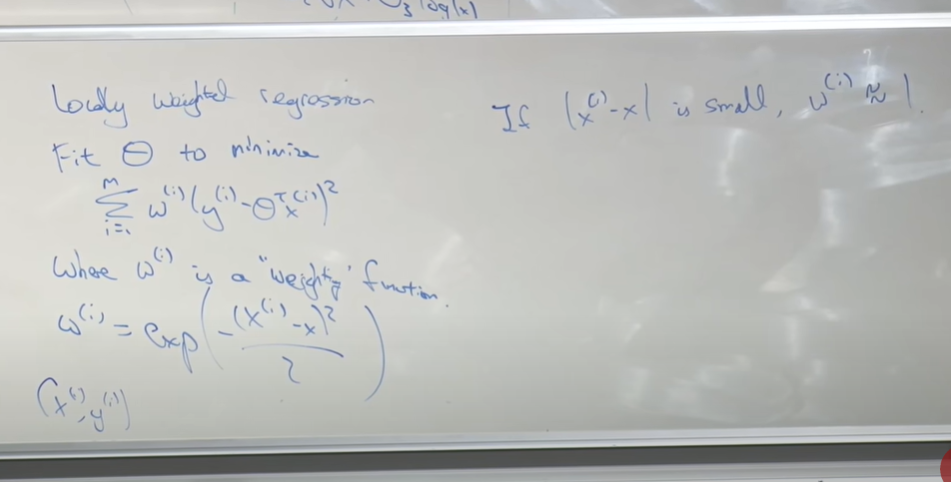 3 log(x)
Locally weighted regression
Fit Θ to minimize
M
Σ w⁽ⁱ⁾(y⁽ⁱ⁾-Θᵀx⁽ⁱ⁾)²
i=1
Where w⁽ⁱ⁾ is a "weighting" function.
w⁽ⁱ⁾ = exp(-(x⁽ⁱ⁾-x)²/2)
(x⁽ⁱ⁾, y⁽ⁱ⁾)
If |x⁽ⁱ⁾-x| is small, w⁽ⁱ⁾ ≈ 1.